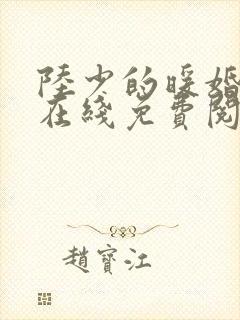 陸少的暖婚
在綫免費閱
趙寶江